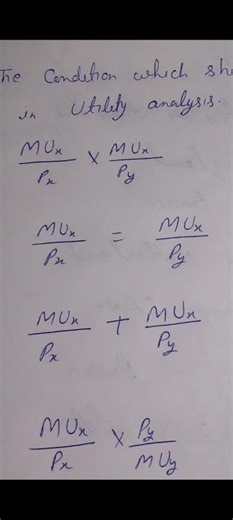 The Condition which sh
in Utility analysis.
MUx/Px × MUx/Py
MUx/Px = MUx/Py
MUx/Px + MUx/Py
MUx/Px × Py/MUy